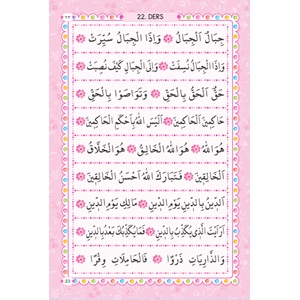 22. DERS
جِبَالٌ اَلْجِبَالُ وَاِذَا الْجِبَالُ سُيِّرَتْ
وَاِذَا الْجِبَالُ نُسِفَتْ وَاِلَى الْجِبَالِ كَيْفَ نُصِبَتْ
حَقٌّ اَلْحَقُّ بِالْحَقِّ وَتَوَاصَوْا بِالْحَقِّ
حَاكِمِينَ اَلْحَاكِمِينَ اَلَيْسَ اللّٰهُ بِاَحْكَمِ الْحَاكِمِينَ
هُوَ اللّٰهُ هُوَ اللّٰهُ الْخَالِقُ هُوَ الْخَلَّاقُ
اَلْخَالِقِينَ فَتَبَارَكَ اللّٰهُ اَحْسَنُ الْخَالِقِينَ
اَلدِّينِ يَوْمِ الدِّينِ مَالِكِ يَوْمِ الدِّينِ
اَرَاَيْتَ الَّذِي يُكَذِّبُ بِالدِّينِ فَمَا يُكَذِّبُكَ بَعْدُ بِالدِّينِ
وَالذَّارِيَاتِ ذَرْوًا فَالْحَامِلَاتِ وِقْرًا